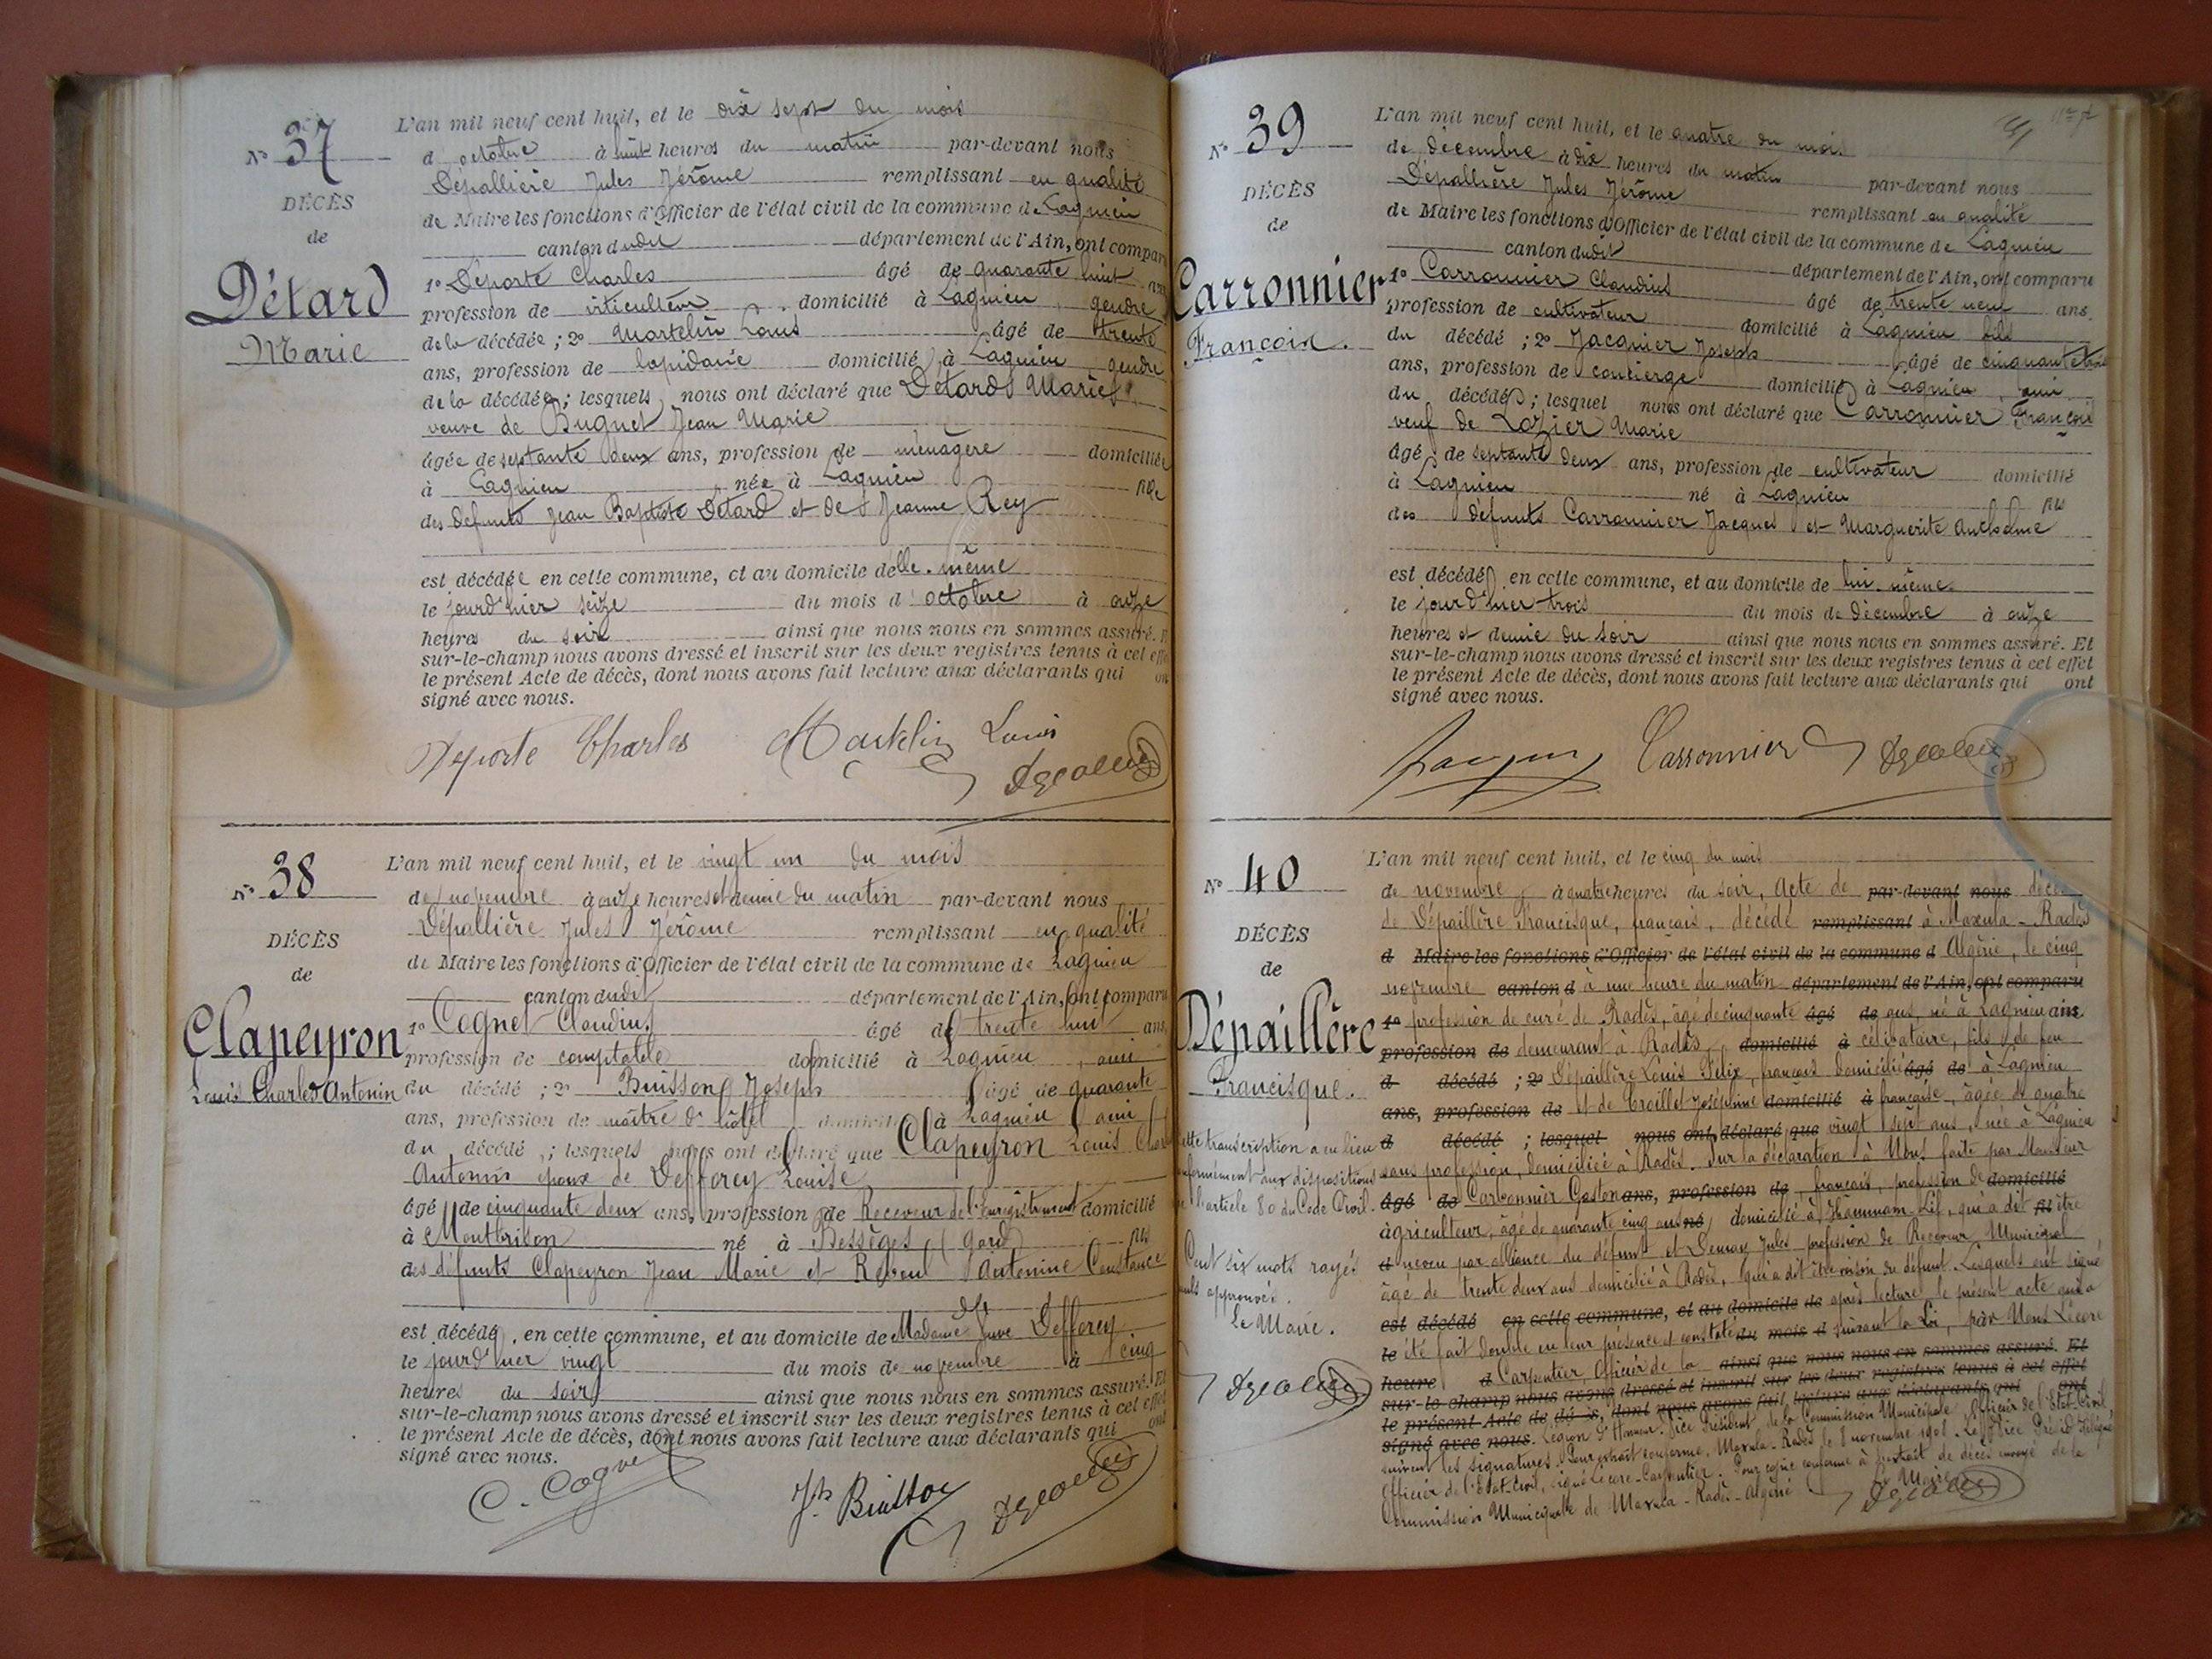 N° 37
DÉCÈS
de
Détard
Marie
L'an mil neuf cent huit, et le dix sept du mois
d'octobre à huit heures du matin par-devant nous
Dépallière Jules Jérôme remplissant en qualité
de Maire les fonctions d'Officier de l'état civil de la commune de Lagnieu
canton dudit département de l'Ain, ont comparu
1° Deporte Charles âgé de quarante huit ans
profession de viticulteur domicilié à Lagnieu, gendre
de la décédée; 2° Martelin Louis âgé de trente
ans, profession de lapidaire domicilié à Lagnieu, gendre
de la décédée; lesquels nous ont déclaré que Détard Marie
veuve de Bugnet Jean Marie
âgée de septante deux ans, profession de ménagère domiciliée
à Lagnieu née à Lagnieu fille
des défunts Jean Baptiste Détard et de Jeanne Rey
est décédée en cette commune, et au domicile d'elle-même
le jourd'hier seize du mois d'octobre à onze
heures du soir ainsi que nous nous en sommes assuré. Et
sur-le-champ nous avons dressé et inscrit sur les deux registres tenus à cet effet
le présent Acte de décès, dont nous avons fait lecture aux déclarants qui ont
signé avec nous.
Deporte Charles Martelin Louis
N° 38
DÉCÈS
de
Clapeyron
Louis Charles Antonin
L'an mil neuf cent huit, et le vingt un du mois
de novembre à onze heures et demie du matin par-devant nous
Dépallière Jules Jérôme remplissant en qualité
de Maire les fonctions d'Officier de l'état civil de la commune de Lagnieu
canton dudit département de l'Ain, ont comparu
1° Cognet Claudius âgé de trente huit ans
profession de comptable domicilié à Lagnieu, ami
du décédé; 2° Buisson Joseph âgé de quarante
ans, profession de maître d'hôtel domicilié à Lagnieu ami
du décédé; lesquels nous ont déclaré que Clapeyron Louis Charles
Antonin époux de Defforey Louise
âgé de cinquante deux ans, profession de Receveur de l'Enregistrement domicilié
à Montbrison né à Bessèges (Gard) fils
des défunts Clapeyron Jean Marie et Antonine Constance
est décédé, en cette commune, et au domicile de Madame Defforey
le jourd'hier vingt du mois de novembre à cinq
heures du soir ainsi que nous nous en sommes assuré. Et
sur-le-champ nous avons dressé et inscrit sur les deux registres tenus à cet effet
le présent Acte de décès, dont nous avons fait lecture aux déclarants qui ont
signé avec nous.
C. Cognet Jh Buisson
N° 39
DÉCÈS
de
Carronnier
François.
L'an mil neuf cent huit, et le quatre du mois
de décembre à dix heures du matin par-devant nous
Dépallière Jules Jérôme remplissant en qualité
de Maire les fonctions d'Officier de l'état civil de la commune de Lagnieu
canton dudit département de l'Ain, ont comparu
1° Carronnier Claudius âgé de trente neuf ans.
profession de cultivateur domicilié à Lagnieu fils
du décédé; 2° Jacquier Joseph âgé de cinquante trois
ans, profession de concierge domicilié à Lagnieu, ami
du décédé; lesquel nous ont déclaré que Carronnier François
veuf de Lozier Marie
âgé de septante deux ans, profession de cultivateur domicilié
à Lagnieu né à Lagnieu fils
des défunts Carronnier Jacques et Marguerite Anthelme
est décédé en cette commune, et au domicile de lui-même
le jourd'hier trois du mois de décembre à onze
heures et demie du soir ainsi que nous nous en sommes assuré. Et
sur-le-champ nous avons dressé et inscrit sur les deux registres tenus à cet effet
le présent Acte de décès, dont nous avons fait lecture aux déclarants qui ont
signé avec nous.
Carronnier
N° 40
DÉCÈS
de
Dépaillère
Francisque.
Cette transcription a eu lieu
conformément aux dispositions
de l'article 80 du Code Civil.
Cent six mots rayés
nuls approuvés.
Le Maire.
L'an mil neuf cent huit, et le cinq du mois
de novembre à quatre heures du soir, Acte de par-devant nous décès
de Dépaillère Francisque, français, décédé remplissant à Maxula-Radès
d Maire les fonctions d'Officier de l'état civil de la commune d Algérie, le cinq
novembre canton d à une heure du matin département de l'Ain, ont comparu
1° profession de curé de Radès, âgé de cinquante âgé de ans, né à Lagnieu ans.
profession de demeurant à Radès, domicilié à célibataire, fils de feu
d décédé; 2° Dépaillère Louis Félix, français domicilié âgé de à Lagnieu
ans, profession de et de Croillet Joséphine domicilié à française, âgée de quatre
d décédé; lesquel nous ont déclaré que vingt sept ans, née à Lagnieu
sans profession, domiciliée à Radès. Sur la déclaration à Nous faite par Monsieur
âgé de Carbonnier Gaston ans, profession de, français, profession de domicilié
agriculteur, âgé de quarante cinq ans né, domicilié à Hammam-Lif, qui a dit fil être
d neveu par alliance du défunt et Jules profession de Receveur Municipal
âgé de trente deux ans domicilié à Radès, qui a dit être voisin du défunt. Lesquels ont signé
est décédé en cette commune, et au domicile de après lecture, le présent acte qui a
le été fait double en leur présence et constaté du mois d suivant la Loi, par Nous Lécore
heure d Carpentier, Officier de la ainsi que nous nous en sommes assuré. Et
sur-le-champ nous avons dressé et inscrit sur les deux registres tenus à cet effet
le présent Acte de décès, dont nous avons fait lecture aux déclarants qui ont
signé avec nous. Légion d'Honneur. Vice Président de la Commission Municipale Officier de l'Etat-Civil
suivent les signatures. Pour extrait conforme, Maxula-Radès le 8 novembre 1908. Le Vice Présid. délégué
Officier de l'Etat-Civil, signé Lécore-Carpentier. Pour copie conforme à l'extrait de décès envoyé de la
Commission Municipale de Maxula-Radès-Algérie Le Maire